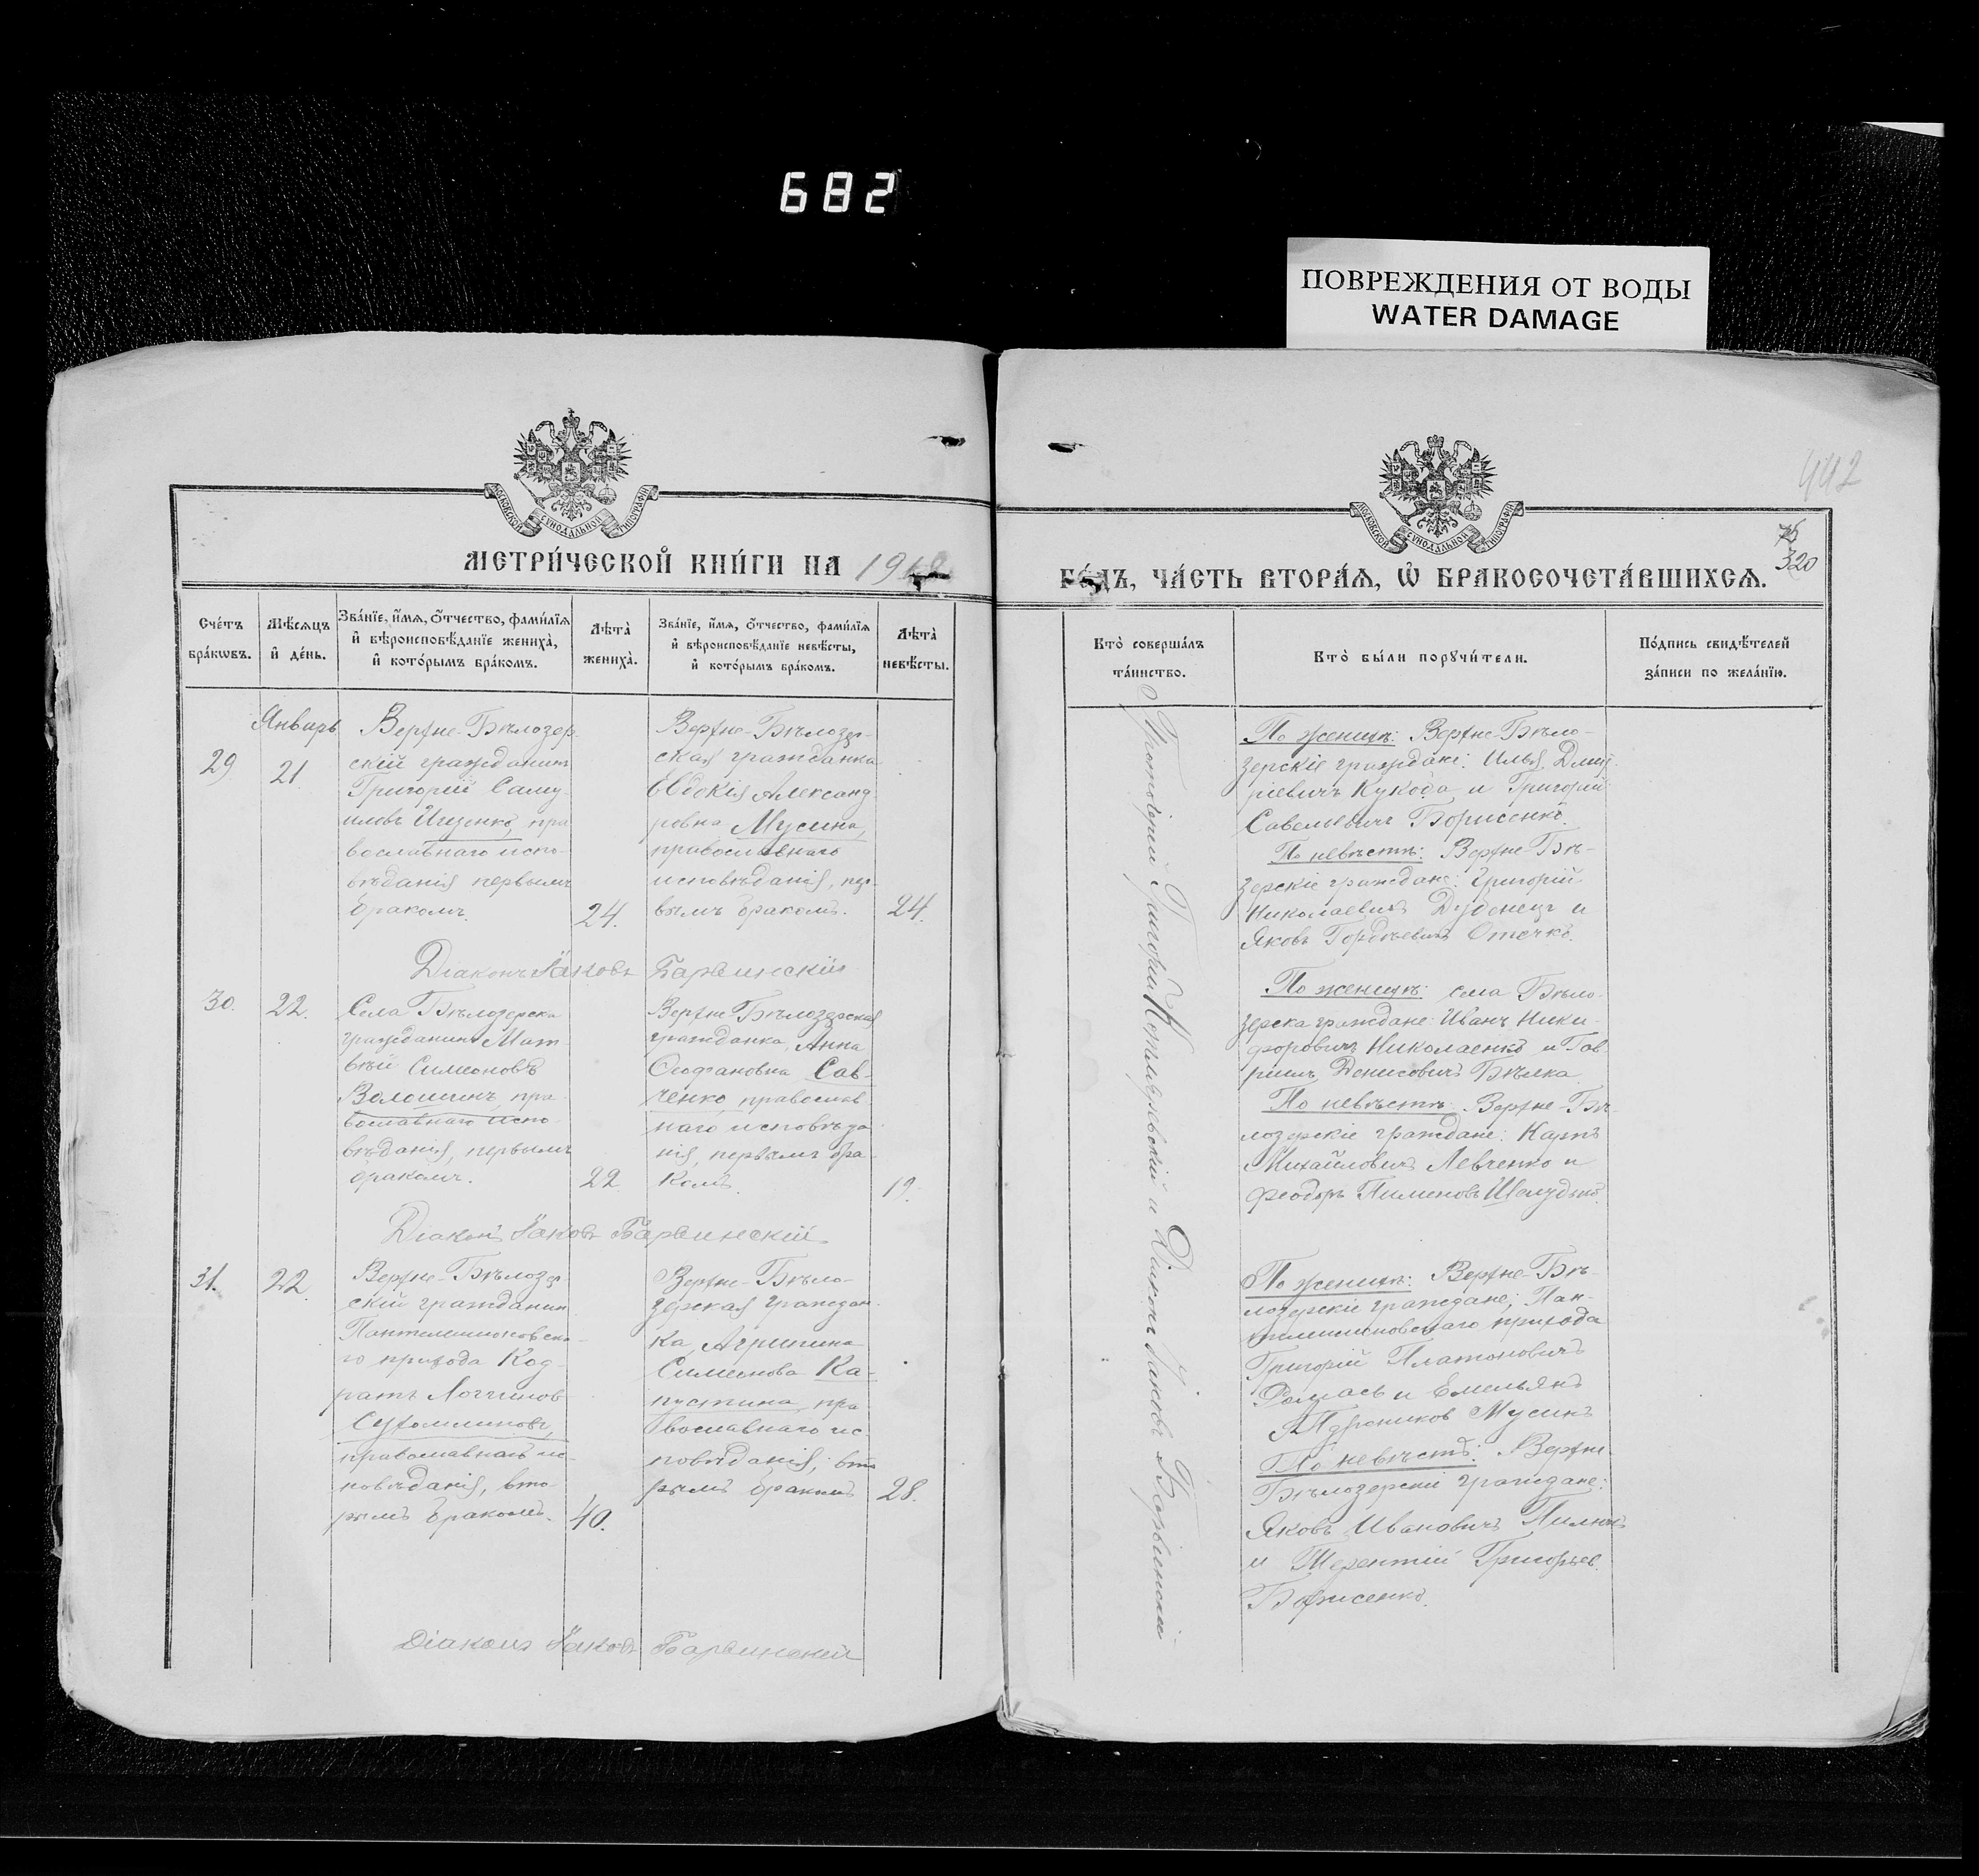 682
ПОВРЕЖДЕНИЯ ОТ ВОДЫ
WATER DAMAGE
МОСКОВСКОЙ СѴНОДАЛЬНОЙ ТИПОГРАФІИ
МЕТРИ́ЧЕСКОЙ КНИ́ГИ НА 19
Сче́тъ бра́кѡвъ.
Мѣ́сѧцъ и҆ де́нь.
Зва́нїе, и҆́мѧ, ѻ҆́тчество, фами́лїѧ
и҆ вѣроисповѣ́данїе жениха̀,
и҆ кото́рымъ бра́комъ.
Лѣта̀ жениха̀.
Зва́нїе, и҆́мѧ, ѻ҆́тчество, фами́лїѧ
и҆ вѣроисповѣ́данїе невѣ́сты,
и҆ кото́рымъ бра́комъ.
Лѣта̀ невѣ́сты.
Январь
29
21
Верхне-Бѣлозер-
скій гражданинъ
Григорій Саму-
иловъ Ищенко, пра
вославнаго испо-
вѣданія первымъ
бракомъ.
24.
Верхне-Бѣлозер-
ская гражданка
Евдокія Александ
ровна Мусина,
православнаго
исповѣданія, пер-
вымъ бракомъ.
24.
Діаконъ Іаковъ Барвинскій
30.
22.
Села Бѣлозерки
гражданинъ Мат
вѣй Симеоновъ
Волошинъ, пра
вославнаго испо-
вѣданія, первымъ
бракомъ.
22
Верхне-Бѣлозерская
гражданка, Анна
Стефановна Сав-
ченко, православ
наго исповѣда
нія, первымъ бра
комъ.
19.
Діаконъ Іаковъ Барвинскій
31.
22.
Верхне-Бѣлозер
скій гражданин
Пантелеимоновска-
го прихода Код-
ратъ Логгинов
Сухомлиновъ,
православнаго ис-
повѣданія, вто-
рымъ бракомъ.
40.
Верхне-Бѣло-
зерская граждан
ка, Агрипина
Симеонова Ка-
пустина, пра
вославнаго ис
повѣданія, вто
рымъ бракомъ
28.
Діаконъ Іаковъ Барвинскій
442
МОСКОВСКОЙ СѴНОДАЛЬНОЙ ТИПОГРАФІИ
75
320
ГО́ДЪ, ЧА́СТЬ ВТОРА́Ѧ, Ѡ҆ БРАКОСОЧЕТА́ВШИХСѦ.
Кто̀ соверша́лъ та́инство.
Кто̀ бы́ли порꙋчи́тели.
По́дпись свидѣ́телей за́писи по жела́нїю.
Протоіерей Григорій и Діаконъ Іаковъ Барвинскій
По женихѣ: Верхне-Бѣло-
зерскіе граждане: Илья Дмит
ріевичъ Кукода и Григорій
Савельевичъ Борисенко.
По невѣстѣ: Верхне-Бѣ-
зерскіе граждане: Григорій
Николаевичъ Дубенец и
Яковъ Гордѣевичъ Отечко.
По женихѣ: села Бѣло
зерка граждане: Иванъ Ники-
форовичъ Николаенко и Гав
ріилъ Денисовичъ Бѣлка
По невѣстѣ: Верхне-Бѣ
лозерскіе граждане: Карпъ
Михайловичъ Левченко и
Феодоръ Пименовъ
По женихѣ: Верхне-Бѣ-
лозерскіе граждане; Пан-
телеимоновскаго прихода
Григорій Платоновичъ
и Емельянъ
Мусинъ
По невѣстѣ: Верхне-
Бѣлозерскіе граждане:
Яковъ Ивановичъ
и Терентій Григорьев.
Борисенко.